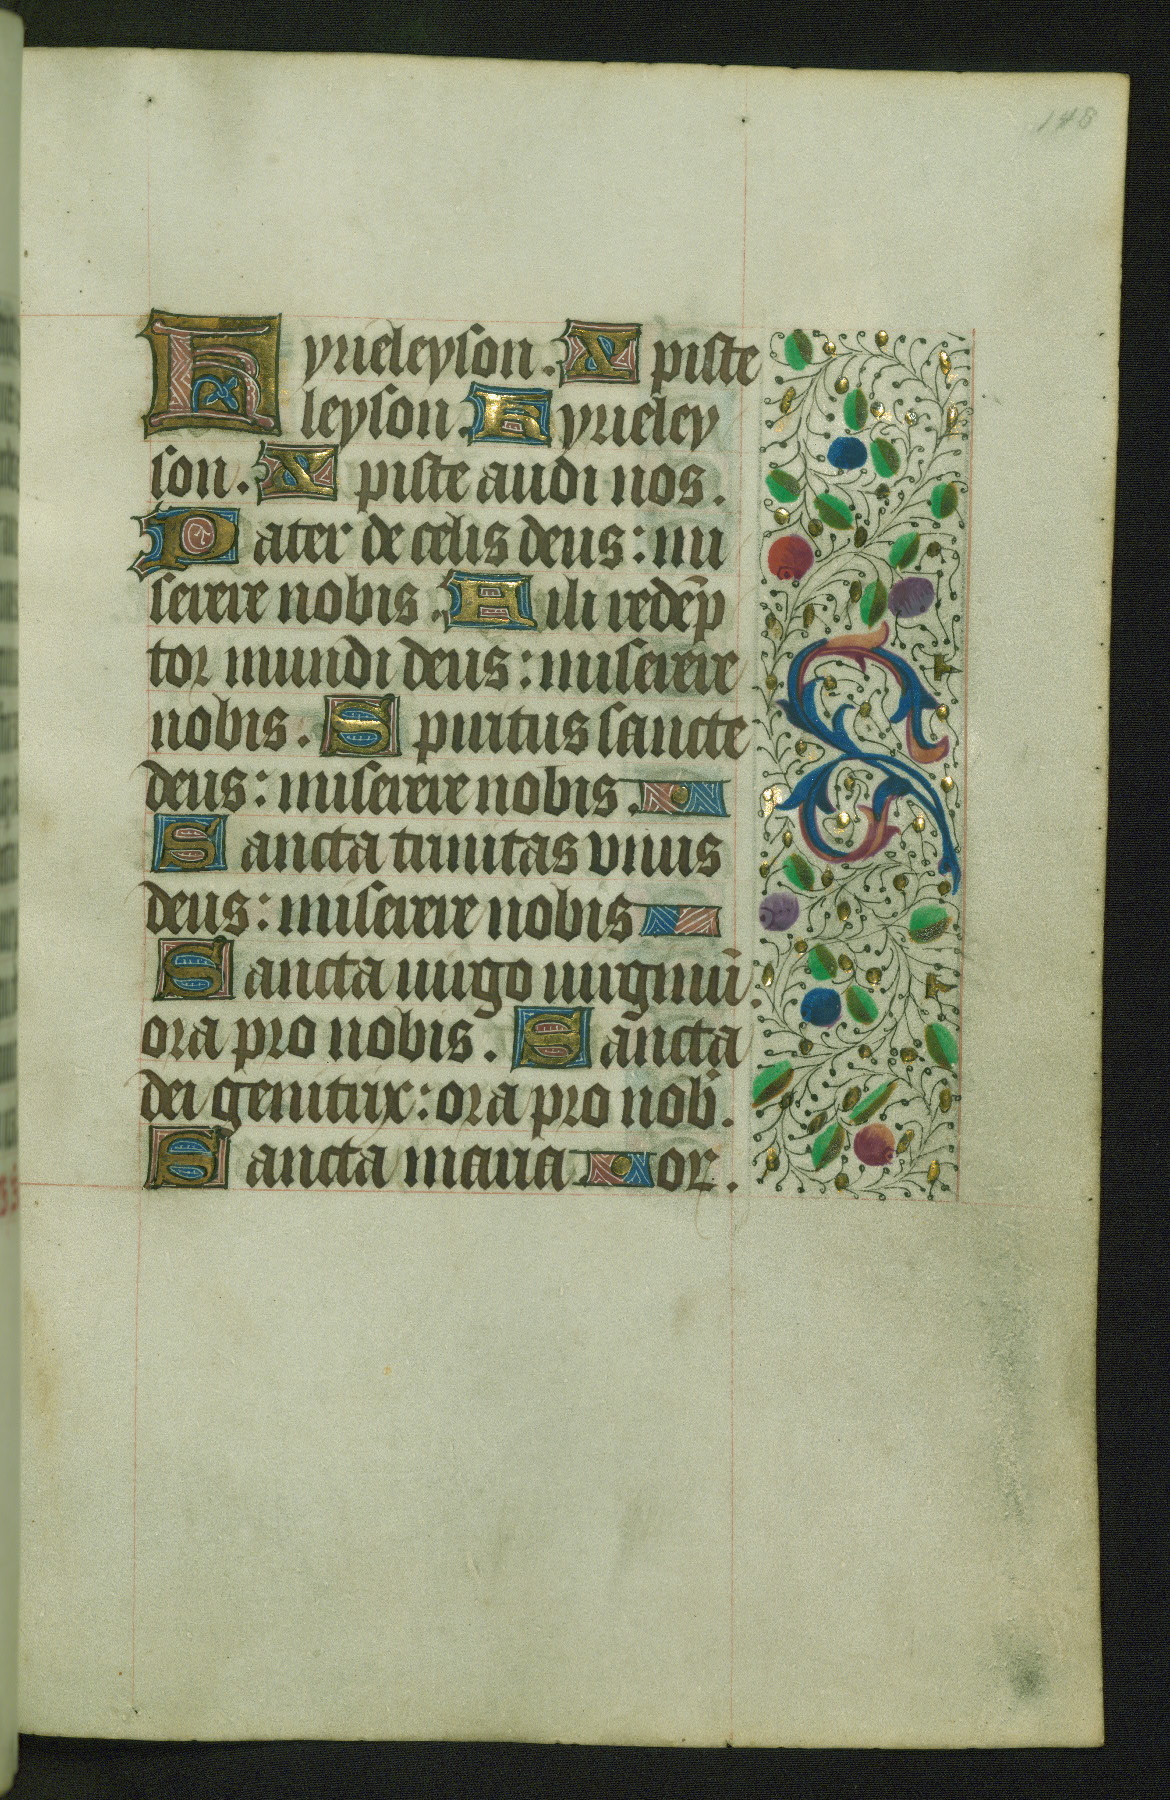 148
Kyrieleyson. Xpiste
leyson. Kyrieley
son. Xpiste audi nos.
Pater de celis deus: mi
serere nobis. Fili redēp
tor mundi deus: miserere
nobis. Spiritus sancte
deus: miserere nobis.
Sancta trinitas vnus
deus: miserere nobis
Sancta uirgo uirginū.
ora pro nobis. Sancta
dei genitrix: ora pro nob̄.
Sancta maria or.